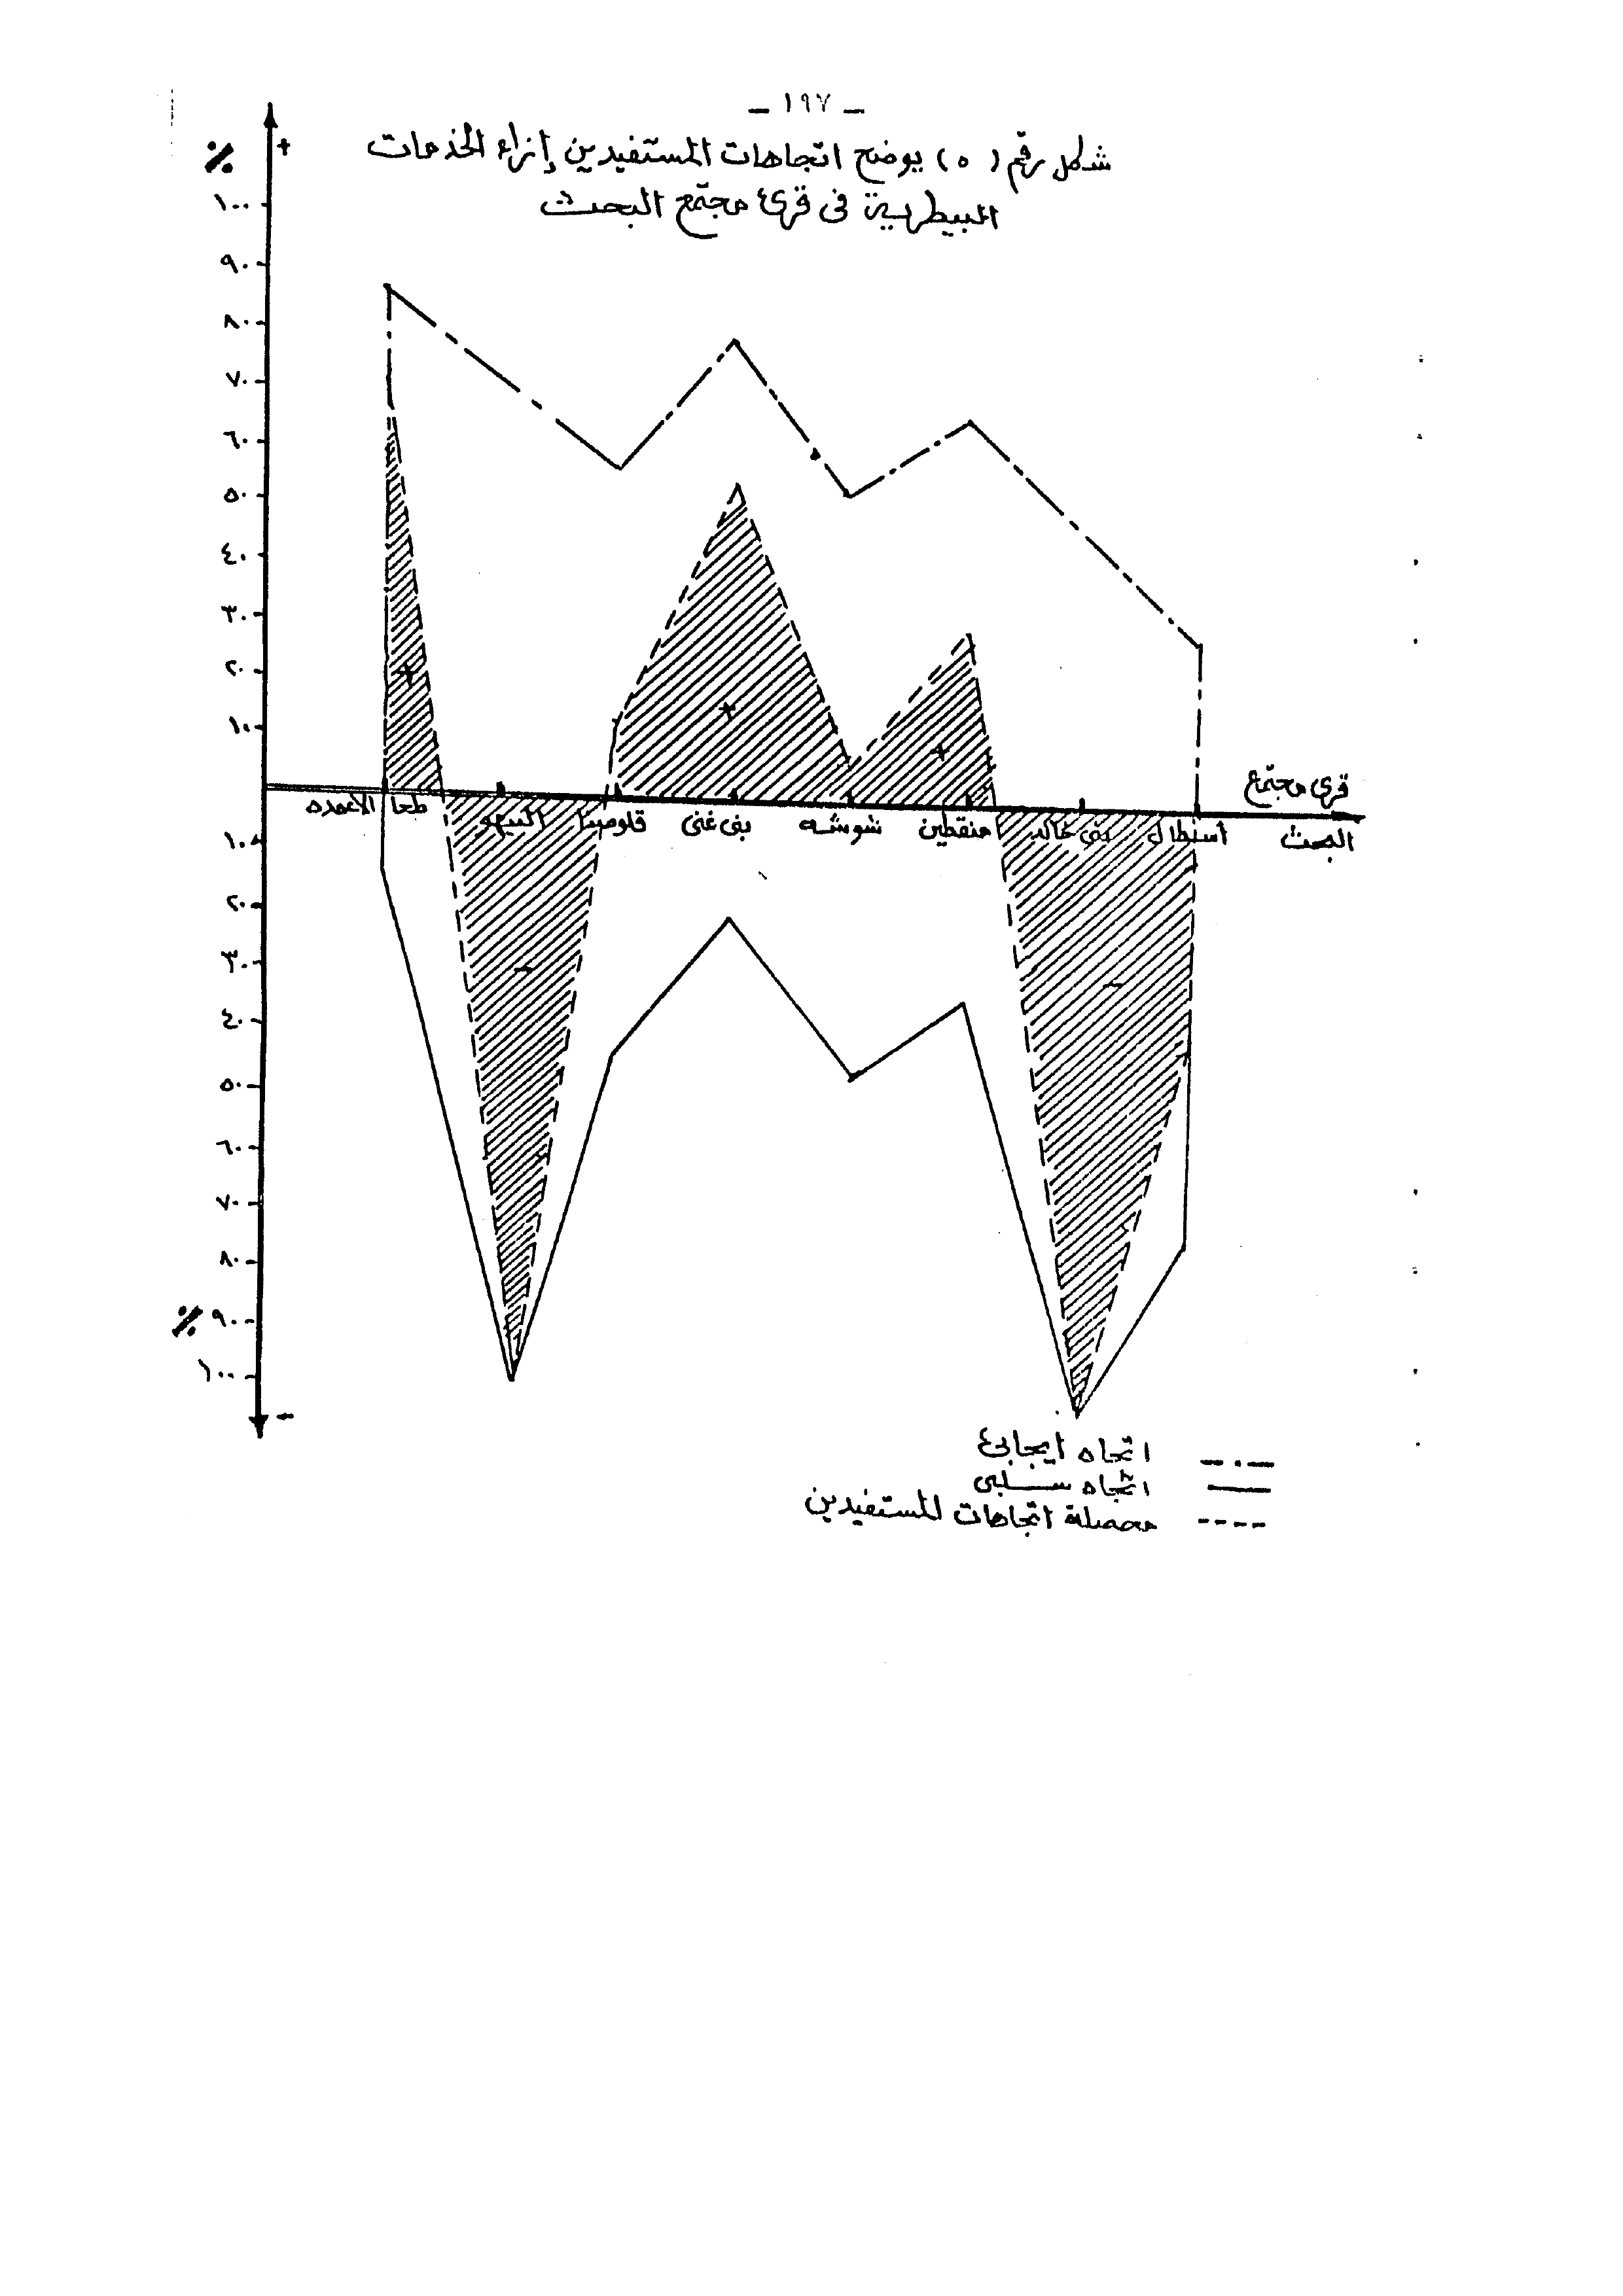 - ١٩٧ -
شكل رقم (٥) يوضح اتجاهات المستفيدين إزاء الخدمات
البيطرية فى قرى مجتمع البحث
+
%
١٠٠
٩٠
٨٠
٧٠
٦٠
٥٠
٤٠
٣٠
٢٠
١٠
+
+
+
قرى مجتمع
البحث
طحا الأعمده
البيهو
قلوصنا
بنى غنى
شوشه
منقطين
بنى خالد
أسطال
١٠
٢٠
٣٠
٤٠
٥٠
٦٠
٧٠
٨٠
٩٠ %
١٠٠
-
-
-
اتجاه ايجابى
اتجاه سلبى
محصلة اتجاهات المستفيدين